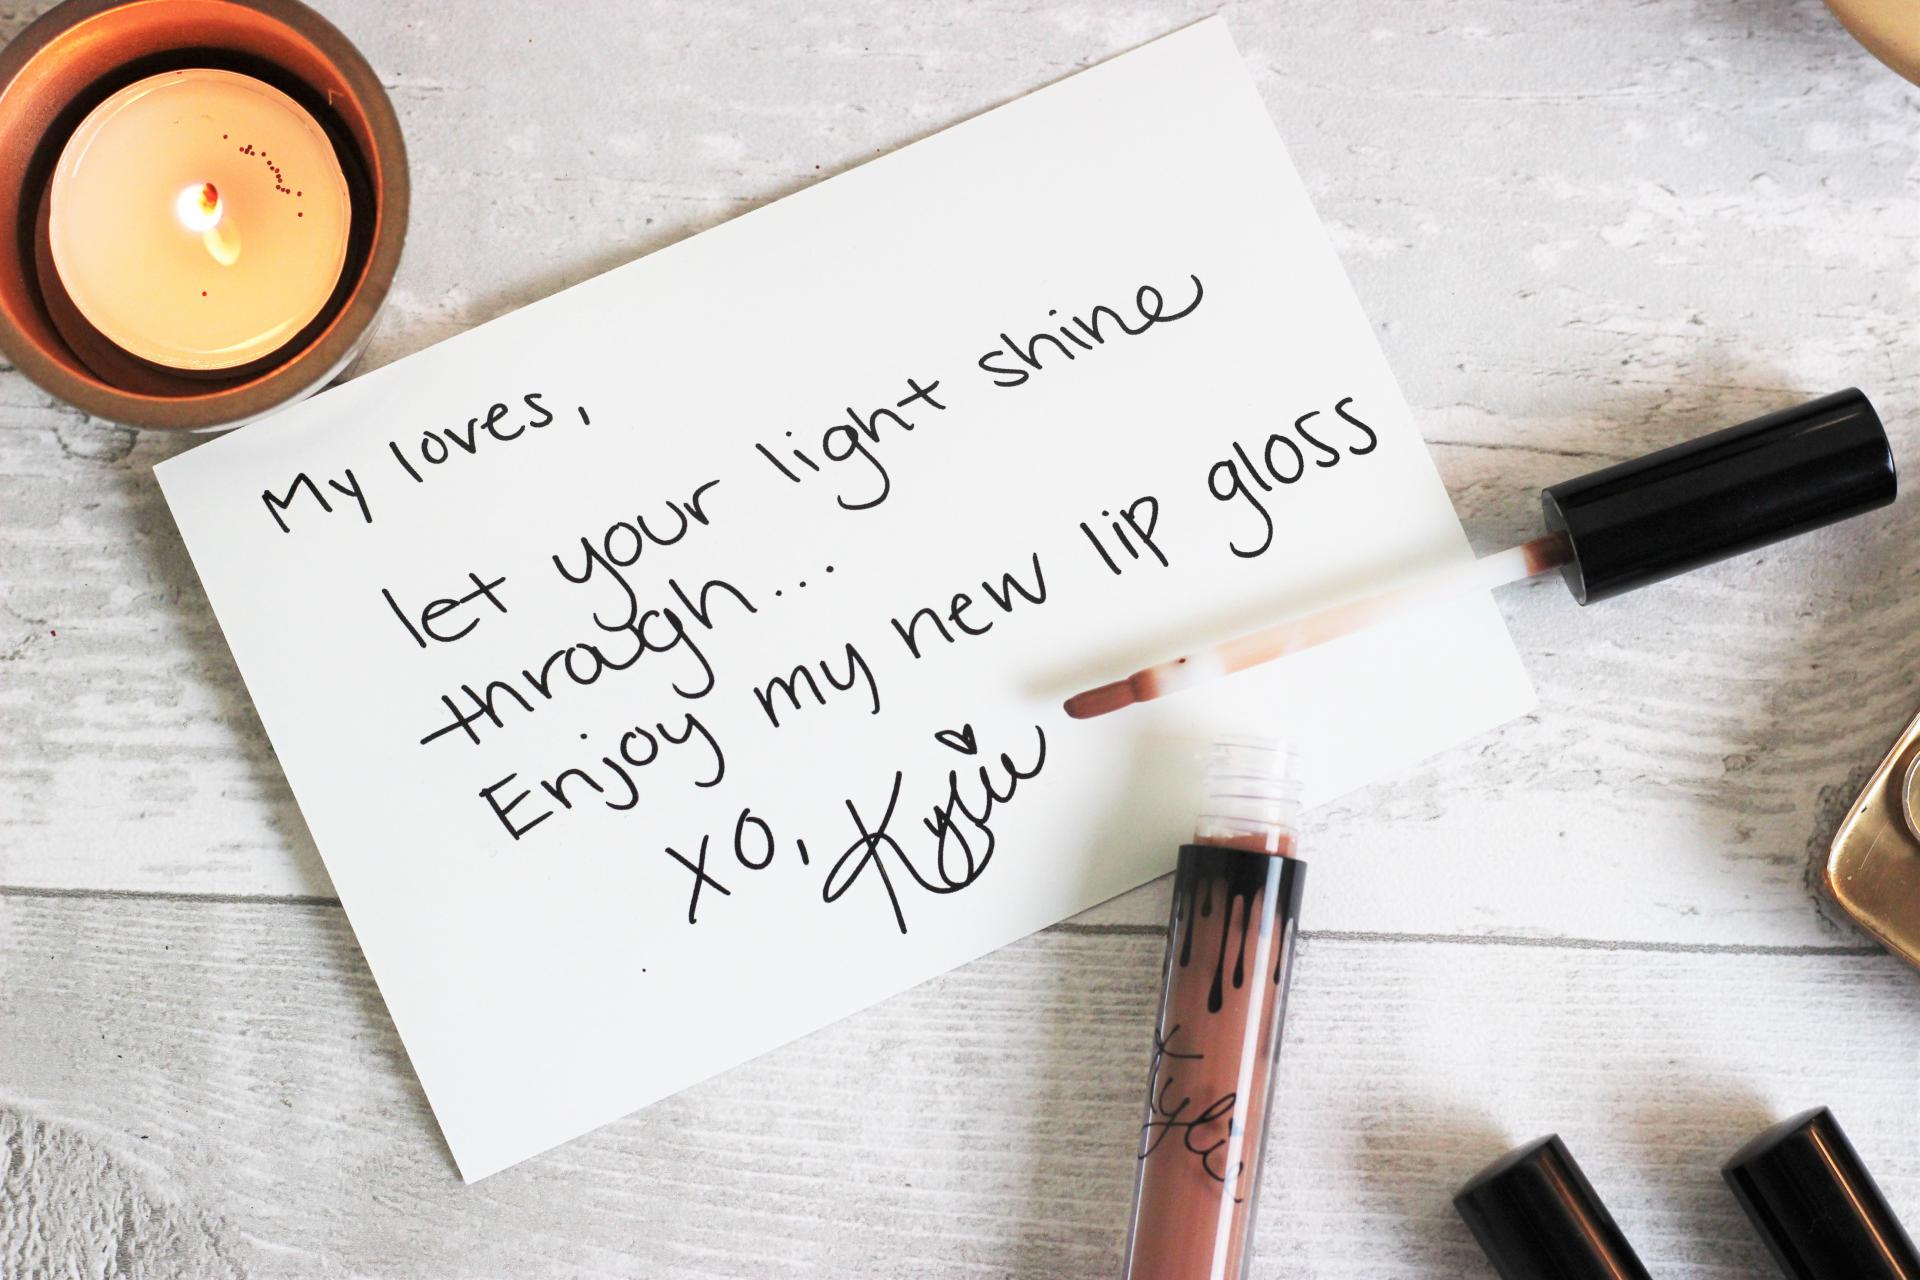 My loves,
let your light shine
through...
Enjoy my new lip gloss
xo, Kylie
Kylie